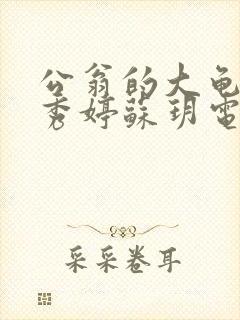 公翁的大龟
秀婷蘇玥電
采采卷耳